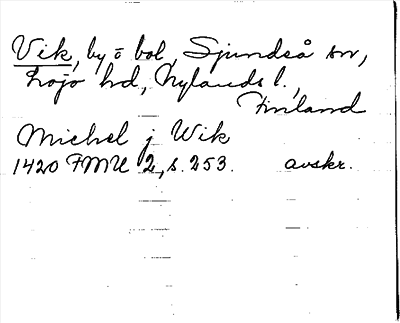 Vik, by o bol, Sjundeå sn,
Lojo hd, Nylands l.,
Finland
Michel j Wik
1420 FMU 2, s. 253. avskr.